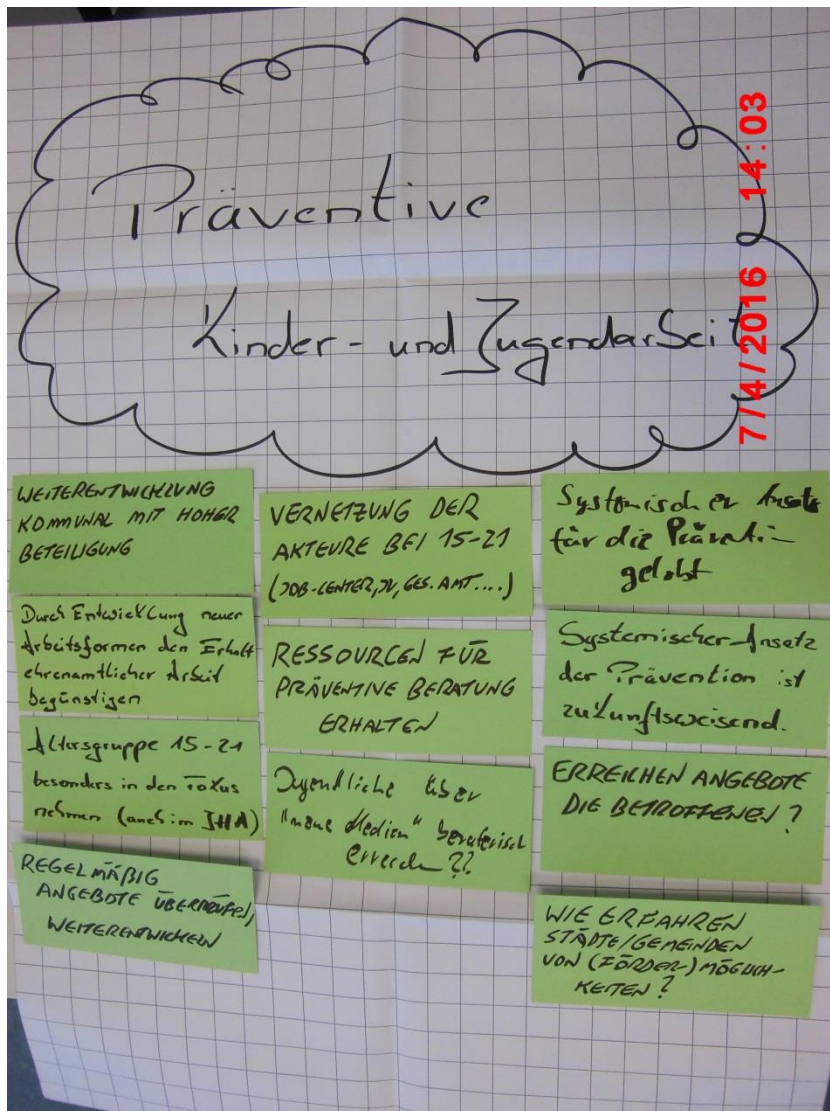 Präventive
Kinder- und Jugendarbeit
7/4/2016 14:03
WEITERENTWICKLUNG
KOMMUNAL MIT HOHER
BETEILIGUNG
Durch Entwicklung neuer
Arbeitsformen den Erhalt
ehrenamtlicher Arbeit
begünstigen
Altersgruppe 15-21
besonders in den Fokus
nehmen (auch im JHA)
REGELMÄßIG
ANGEBOTE ÜBERPRÜFEN,
WEITERENTWICKELN
VERNETZUNG DER
AKTEURE BEI 15-21
(JOB-CENTER, JV, GES. AMT....)
RESSOURCEN FÜR
PRÄVENTIVE BERATUNG
ERHALTEN
Jugendliche über
"neue Medien" beraterisch
erreichen??
Systemischer Ansatz
für die Prävention
gelobt
Systemischer Ansatz
der Prävention ist
zukunftsweisend.
ERREICHEN ANGEBOTE
DIE BETROFFENEN?
WIE ERFAHREN
STÄDTE/GEMEINDEN
VON (FÖRDER-) MÖGLICH-
KEITEN?